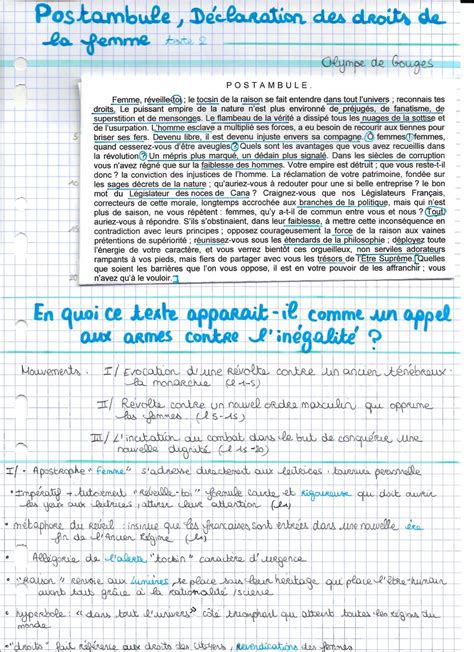 Postambule, Déclaration des droits de
la femme texte 2
Olympe de Gouges
POSTAMBULE.
Femme, réveille-toi ; le tocsin de la raison se fait entendre dans tout l'univers ; reconnais tes
droits. Le puissant empire de la nature n'est plus environné de préjugés, de fanatisme, de
superstition et de mensonges. Le flambeau de la vérité a dissipé tous les nuages de la sottise et
de l'usurpation. L'homme esclave a multiplié ses forces, a eu besoin de recourir aux tiennes pour
briser ses fers. Devenu libre, il est devenu injuste envers sa compagne. Ô femmes ! femmes,
quand cesserez-vous d'être aveugles ? Quels sont les avantages que vous avez recueillis dans
la révolution ? Un mépris plus marqué, un dédain plus signalé. Dans les siècles de corruption
vous n'avez régné que sur la faiblesse des hommes. Votre empire est détruit ; que vous reste-t-il
donc ? la conviction des injustices de l'homme. La réclamation de votre patrimoine, fondée sur
les sages décrets de la nature ; qu'auriez-vous à redouter pour une si belle entreprise ? le bon
mot du Législateur des noces de Cana ? Craignez-vous que nos Législateurs Français,
correcteurs de cette morale, longtemps accrochée aux branches de la politique, mais qui n'est
plus de saison, ne vous répètent : femmes, qu'y a-t-il de commun entre vous et nous ? Tout,
auriez-vous à répondre. S'ils s'obstinaient, dans leur faiblesse, à mettre cette inconséquence en
contradiction avec leurs principes ; opposez courageusement la force de la raison aux vaines
prétentions de supériorité ; réunissez-vous sous les étendards de la philosophie ; déployez toute
l'énergie de votre caractère, et vous verrez bientôt ces orgueilleux, non serviles adorateurs
rampants à vos pieds, mais fiers de partager avec vous les trésors de l'Être Suprême. Quelles
que soient les barrières que l'on vous oppose, il est en votre pouvoir de les affranchir ; vous
n'avez qu'à le vouloir.
En quoi ce texte apparait-il comme un appel
aux armes contre l'inégalité ?
Mouvements : I/ Evocation d'une révolte contre un ancien ténébreux :
la monarchie (l 1-5)
II/ Révolte contre un nouvel ordre masculin qui opprime
les femmes (l 5-15)
III/ L'incitation au combat dans le but de conquérir une
nouvelle dignité (l 15-20)
I/ • Apostrophe "Femme" s'adresse directement aux lectrices, tournure personnelle
• Impératif + tutoiement "réveille-toi" formule courte et rigoureuse qui doit ouvrir
les yeux aux lectrices, attirer leur attention (l1)
• métaphore du réveil : insinue que les françaises sont entrées dans une nouvelle ère
fin de l'Ancien Régime (l1)
• Allégorie de l'alerte "tocsin" caractère d'urgence
• "Raison" renvoie aux Lumières se place sous leur héritage qui place l'être humain
avant tout grâce à la rationalité / science
• hyperbole : "dans tout l'univers" côté triomphant qui atteint toutes les régions du
monde
• "droits" fait référence aux droits des citoyens, revendications des femmes